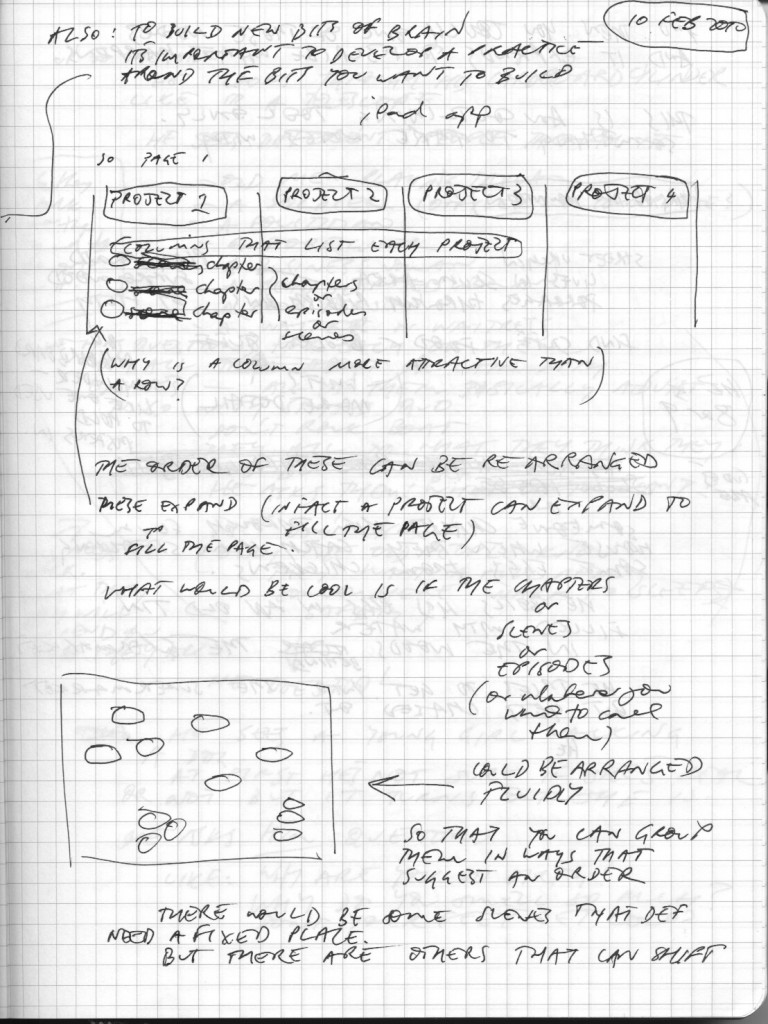 10 FEB 2010
ALSO: TO BUILD NEW BITS OF BRAIN
ITS IMPORTANT TO DEVELOP A PRACTICE
AROUND THE BITS YOU WANT TO BUILD
ipad app
SO PAGE 1
PROJECT 1 PROJECT 2 PROJECT 3 PROJECT 4
COLUMNS THAT LIST EACH PROJECT
chapter
chapter
chapter
chapters
or
episodes
or
scenes
(WHY IS A COLUMN MORE ATTRACTIVE THAN
A ROW?)
THE ORDER OF THESE CAN BE RE ARRANGED
THESE EXPAND (IN FACT A PROJECT CAN EXPAND TO
FILL THE PAGE)
TO
FILL THE PAGE.
WHAT WOULD BE COOL IS IF THE CHAPTERS
or
SCENES
or
EPISODES
(or whatever you
want to call
them)
COULD BE ARRANGED
FLUIDLY
SO THAT YOU CAN GROUP
THEM IN WAYS THAT
SUGGEST AN ORDER
THERE WOULD BE SOME SCENES THAT DEF
NEED A FIXED PLACE.
BUT THERE ARE OTHERS THAT CAN SHIFT